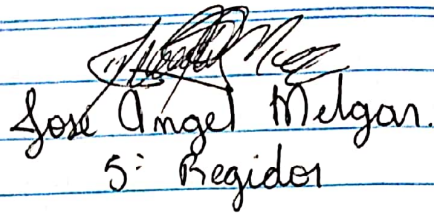 José Angel Melgar.
5: Regidor